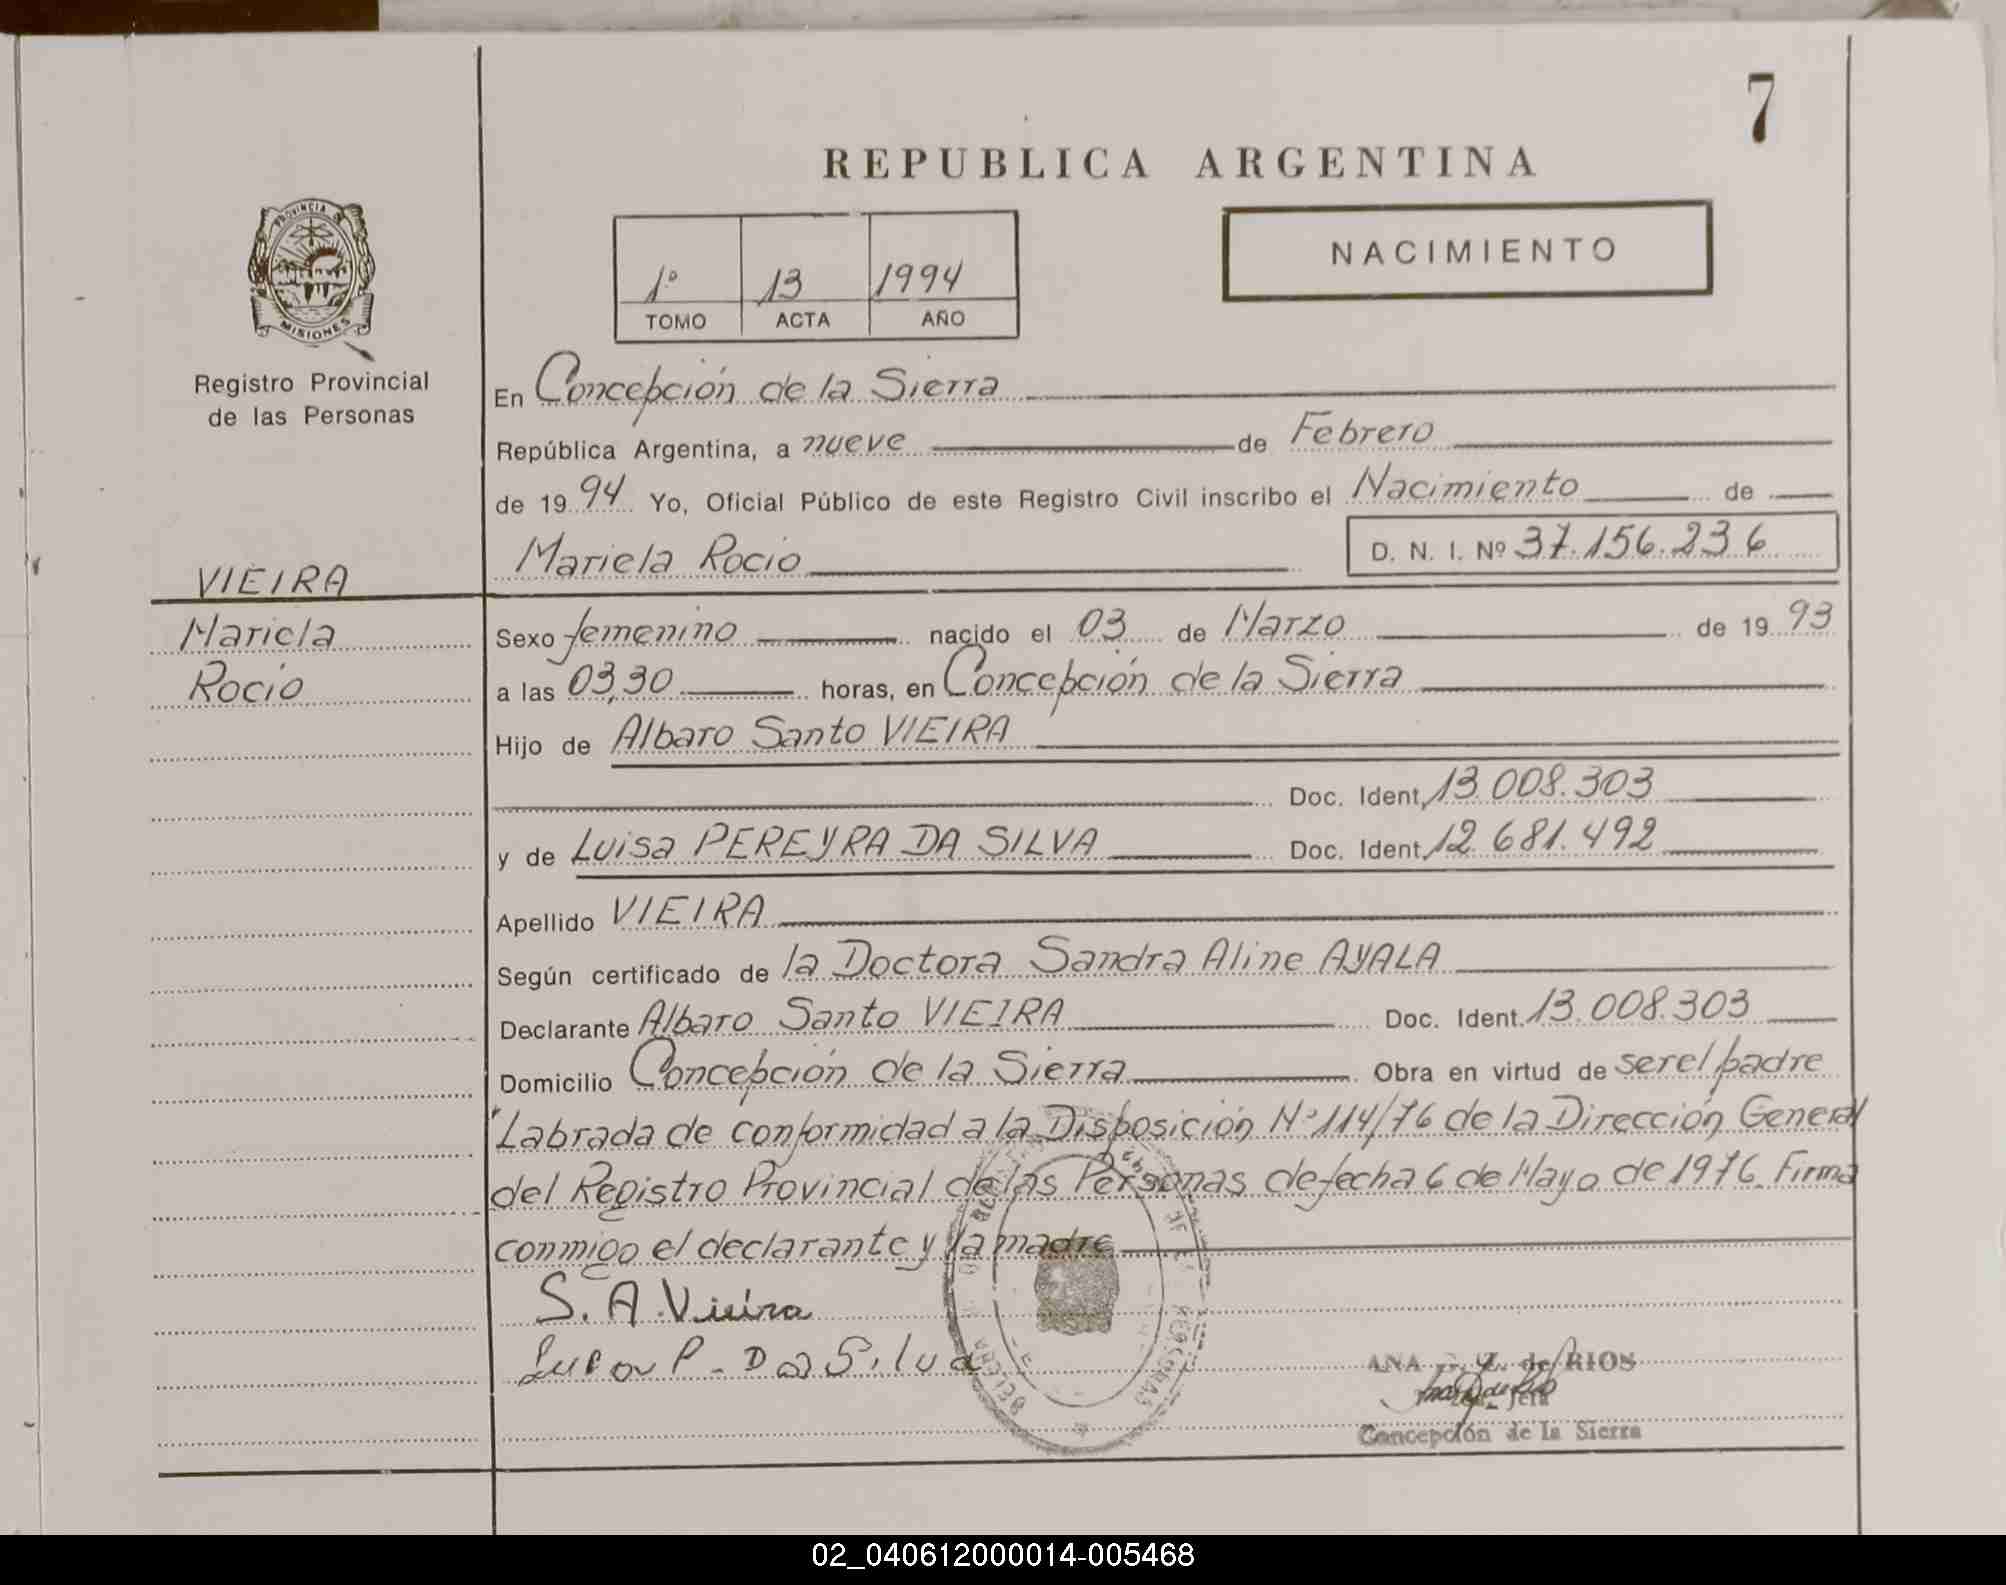 7
REPUBLICA ARGENTINA
PROVINCIA DE
MISIONES
Registro Provincial
de las Personas
1º 13 1994
TOMO ACTA AÑO
NACIMIENTO
En Concepción de la Sierra
República Argentina, a nueve de Febrero
de 1994 Yo, Oficial Público de este Registro Civil inscribo el Nacimiento de
Mariela Rocio D. N. I. Nº 37.156.236
VIEIRA
Mariela
Rocio
Sexo femenino nacido el 03 de Marzo de 1993
a las 03,30 horas, en Concepción de la Sierra
Hijo de Albaro Santo VIEIRA
Doc. Ident. 13.008.303
y de Luisa PEREYRA DA SILVA Doc. Ident. 12.681.492
Apellido VIEIRA
Según certificado de la Doctora Sandra Aline AYALA
Declarante Albaro Santo VIEIRA Doc. Ident. 13.008.303
Domicilio Concepción de la Sierra Obra en virtud de ser el padre
Labrada de conformidad a la Disposición Nº 114/76 de la Dirección General
del Registro Provincial de las Personas de fecha 6 de Mayo de 1976. Firma
conmigo el declarante y la madre
S. A. Vieira
P. Da Silva
ANA de RIOS
Jefa
Concepción de la Sierra
02_040612000014-005468